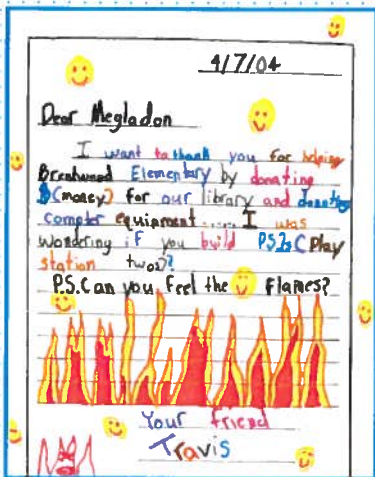 4/7/04
Dear Megladon
I want to thank you for helping
Brentwood Elementary by donating
$(money) for our library and donating
compter equipment...... I was
wondering if you build PS2s (Play
station twos)?
P.S. Can you feel the flames?
Your friend
Travis